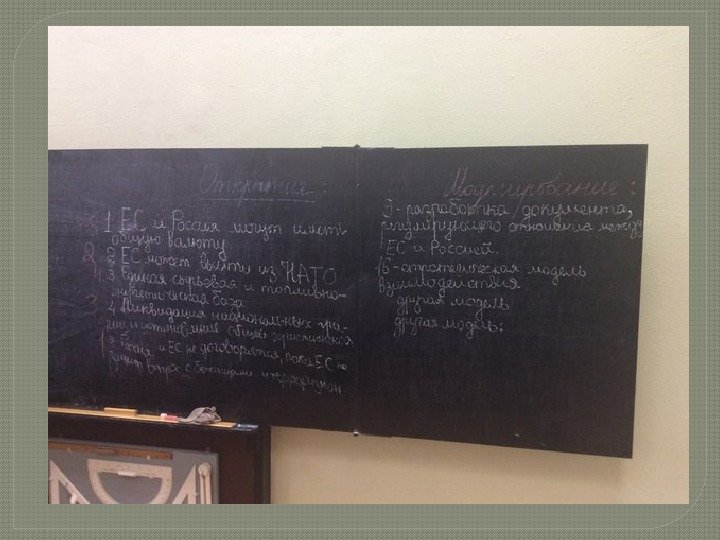 Открытия:
1 ЕС и Россия могут иметь
общую валюту
2 ЕС может выйти из НАТО
3 Единая сырьевая и топливно-
энергетическая база
4 Ликвидация национальных гра-
ниц и
5 Россия и ЕС не договорятся, пока ЕС не
вопрос с беженцами и терроризмом
Моделирование:
Э- разработка документа,
регулирующего отношения между
ЕС и Россией.
-стратегическая модель
взаимодействия
другая модель
другая модель: